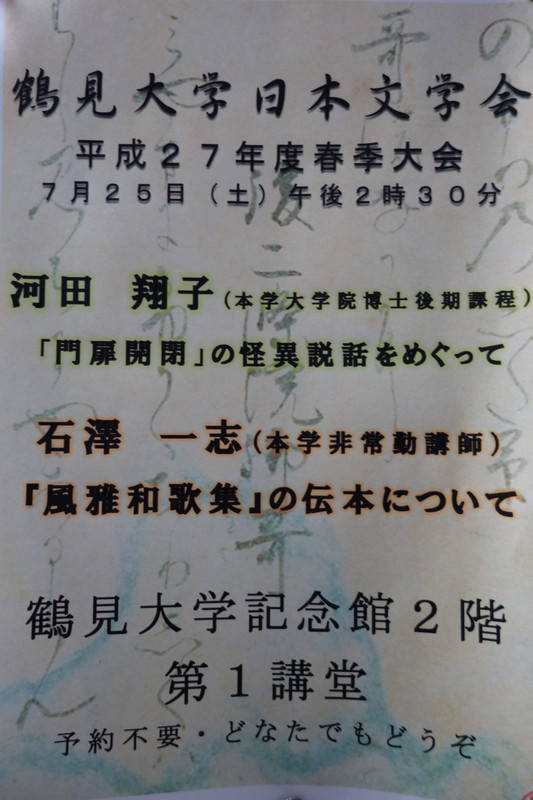 鶴見大学日本文学会
平成27年度春季大会
7月25日（土）午後2時30分
河田　翔子（本学大学院博士後期課程）
「門扉開閉」の怪異説話をめぐって
石澤　一志（本学非常勤講師）
『風雅和歌集』の伝本について
鶴見大学記念館2階
第1講堂
予約不要・どなたでもどうぞ